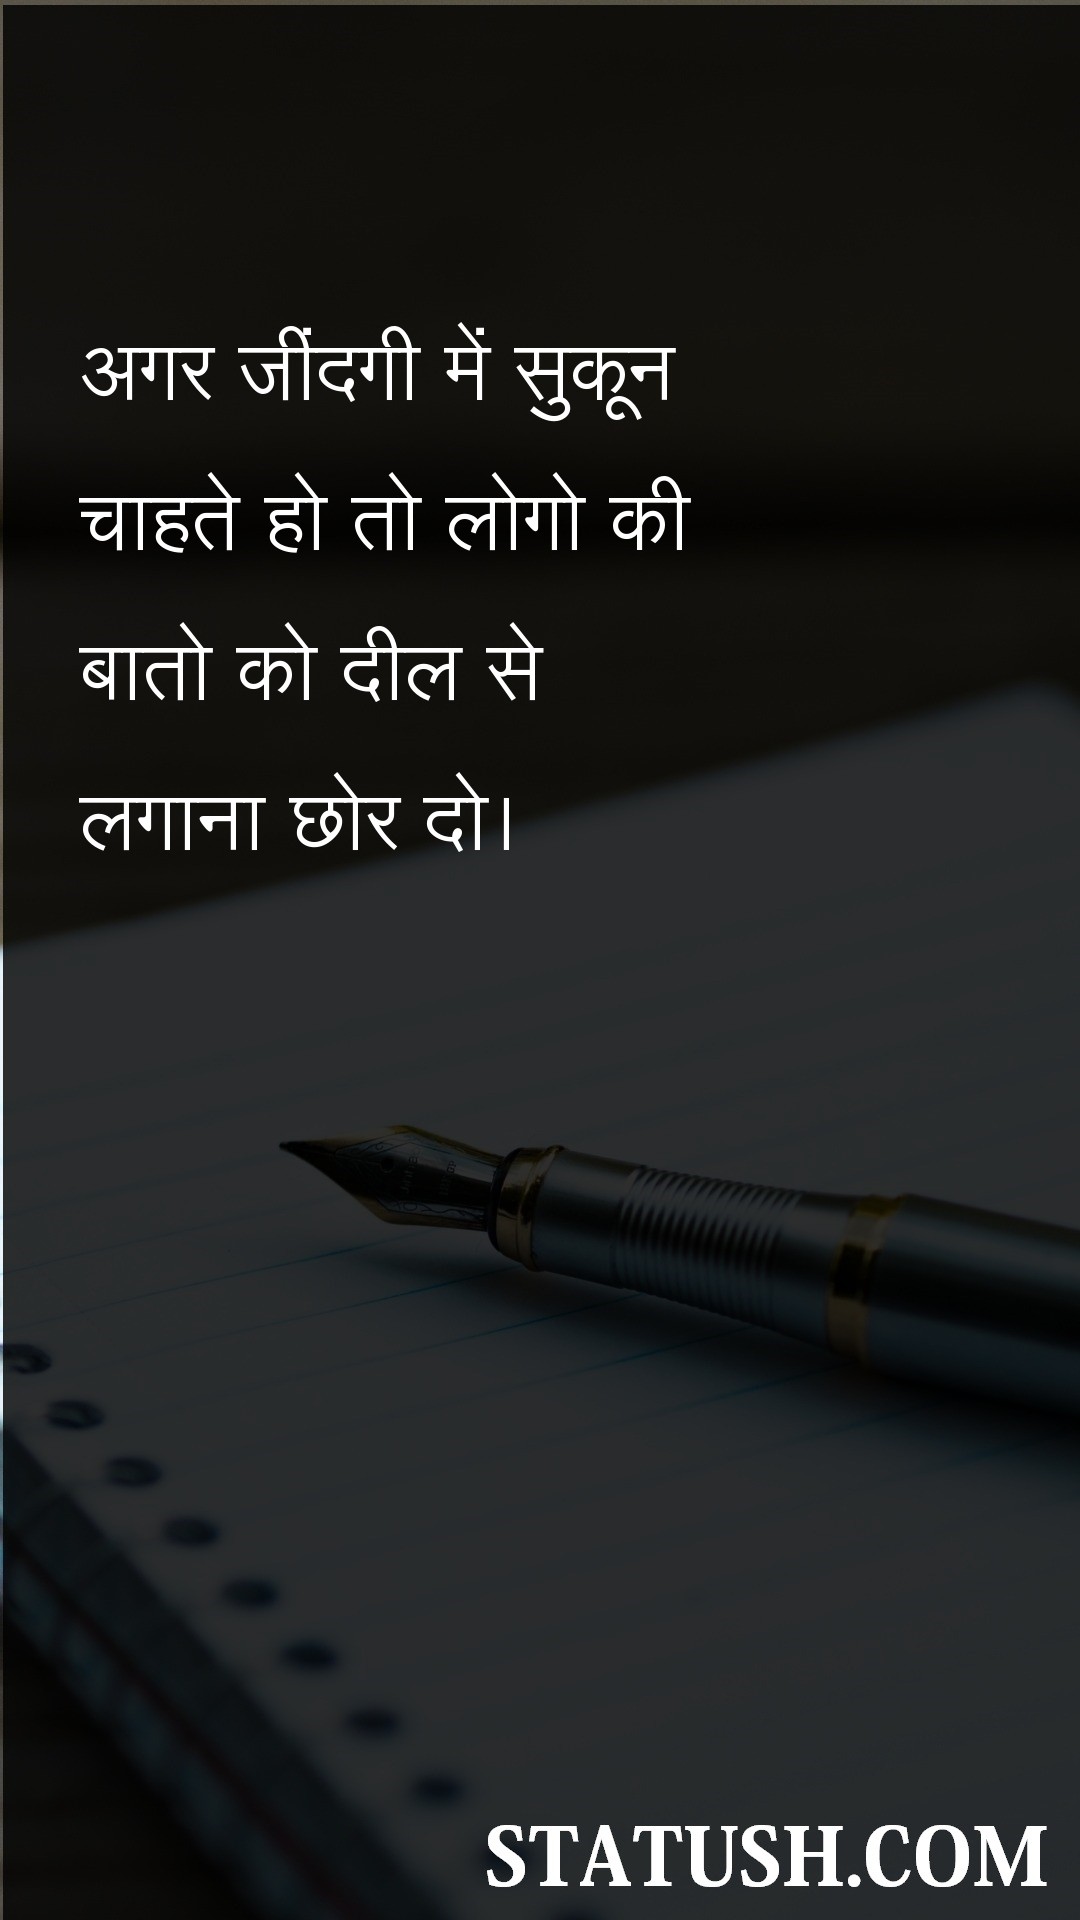 अगर जींदगी में सुकून
चाहते हो तो लोगो की
बातो को दील से
लगाना छोर दो।
STATUSH.COM